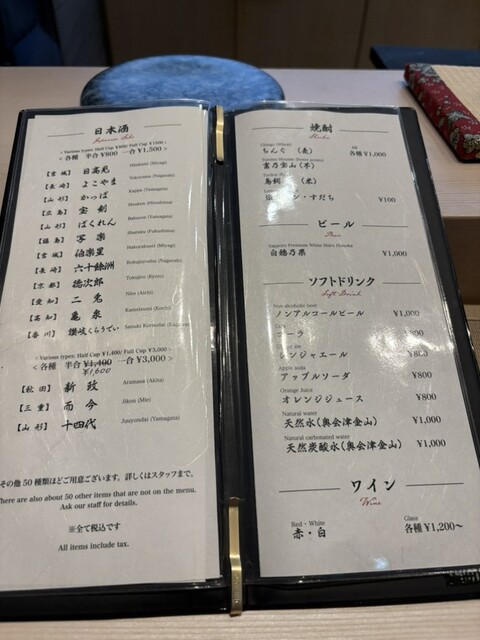 日本酒
Japanese Sake
< Various types: Half Cup ¥800/ Full Cup ¥1500 >
< 各種 半合 ¥800 一合 ¥1,500 >
【宮城】 日高見 Hitakami (Miyagi)
【長崎】 よこやま Yokoyama (Nagasaki)
【山形】 かっぱ Kappa (Yamagata)
【広島】 宝剣 Houken (Hiroshima)
【山形】 ばくれん Bakuren (Yamagata)
【福島】 写楽 Sharaku (Fukushima)
【宮城】 伯楽星 Hakurakusei (Miyagi)
【長崎】 六十餘洲 Rokujuyoshu (Nagasaki)
【京都】 徳次郎 Tokujiro (Kyoto)
【愛知】 二兎 Nito (Aichi)
【高知】 亀泉 Kameizumi (Kochi)
【香川】 讃岐くらうでぃ Sanuki Kuraudai (Kagawa)
< Various types: Half Cup ¥1,400/ Full Cup ¥3,000 >
< 各種 半合 ¥1,400 一合 ¥3,000 >
¥1,600
【秋田】 新政 Aramasa (Akita)
【三重】 而今 Jikon (Mie)
【山形】 十四代 Juuyondai (Yamagata)
その他 50 種類ほどご用意ございます。詳しくはスタッフまで。
There are also about 50 other items that are not on the menu.
Ask our staff for details.
※全て税込です
All items include tax.
焼酎
Shochu
ちんぐ (麦) 各種 ¥1,000
富乃宝山 (芋)
鳥飼 (米)
・すだち ¥100
ビール
Beer
Sapporo Premium White Beer Honoka
白穂乃果 ¥1,000
ソフトドリンク
Soft Drink
Non-alcoholic beer
ノンアルコールビール ¥1,000
コーラ
ジンジャエール ¥800
Apple soda
アップルソーダ ¥800
Orange Juice
オレンジジュース ¥800
Natural water
天然水 (奥会津金山) ¥1,000
Natural carbonated water
天然炭酸水 (奥会津金山) ¥1,000
ワイン
Wine
Red・White Glass
赤・白 各種 ¥1,200～